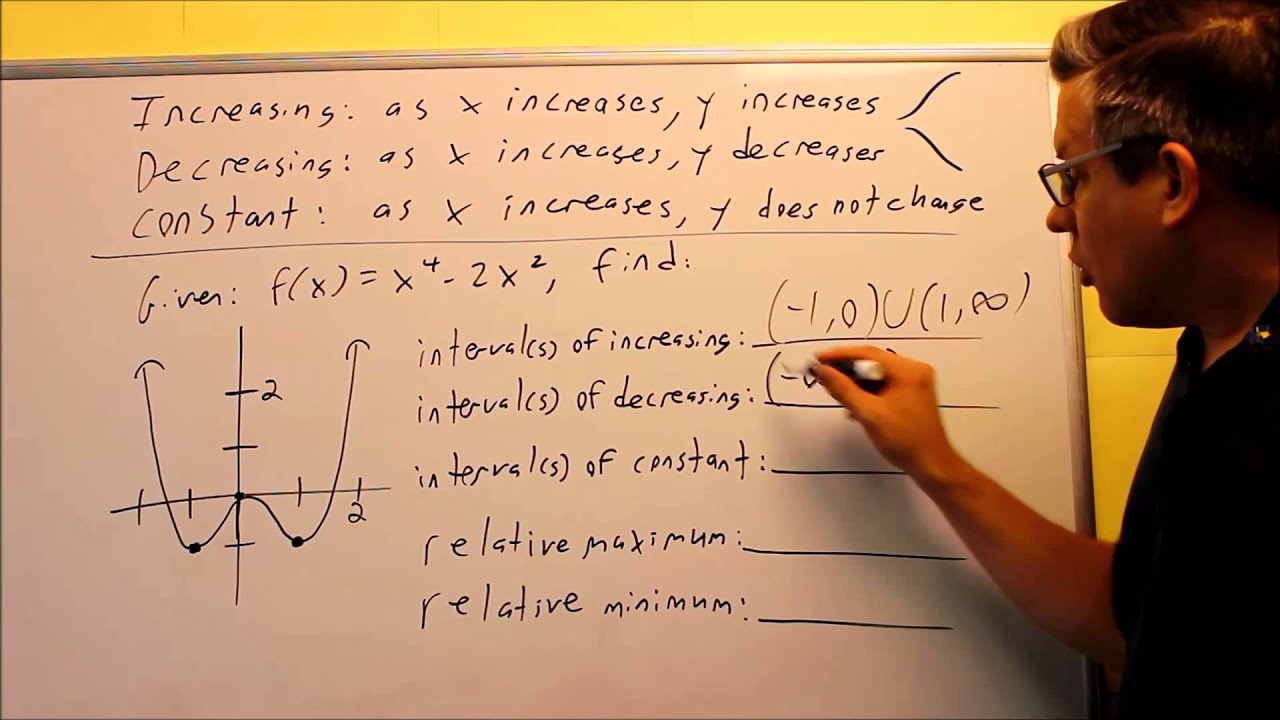 Increasing: as x increases, y increases
Decreasing: as x increases, y decreases
Constant: as x increases, y does not change
Given: f(x) = x⁴ - 2x², find:
interval(s) of increasing: (-1,0)∪(1,∞)
interval(s) of decreasing: (-
interval(s) of constant:
relative maximum:
relative minimum:
2
2